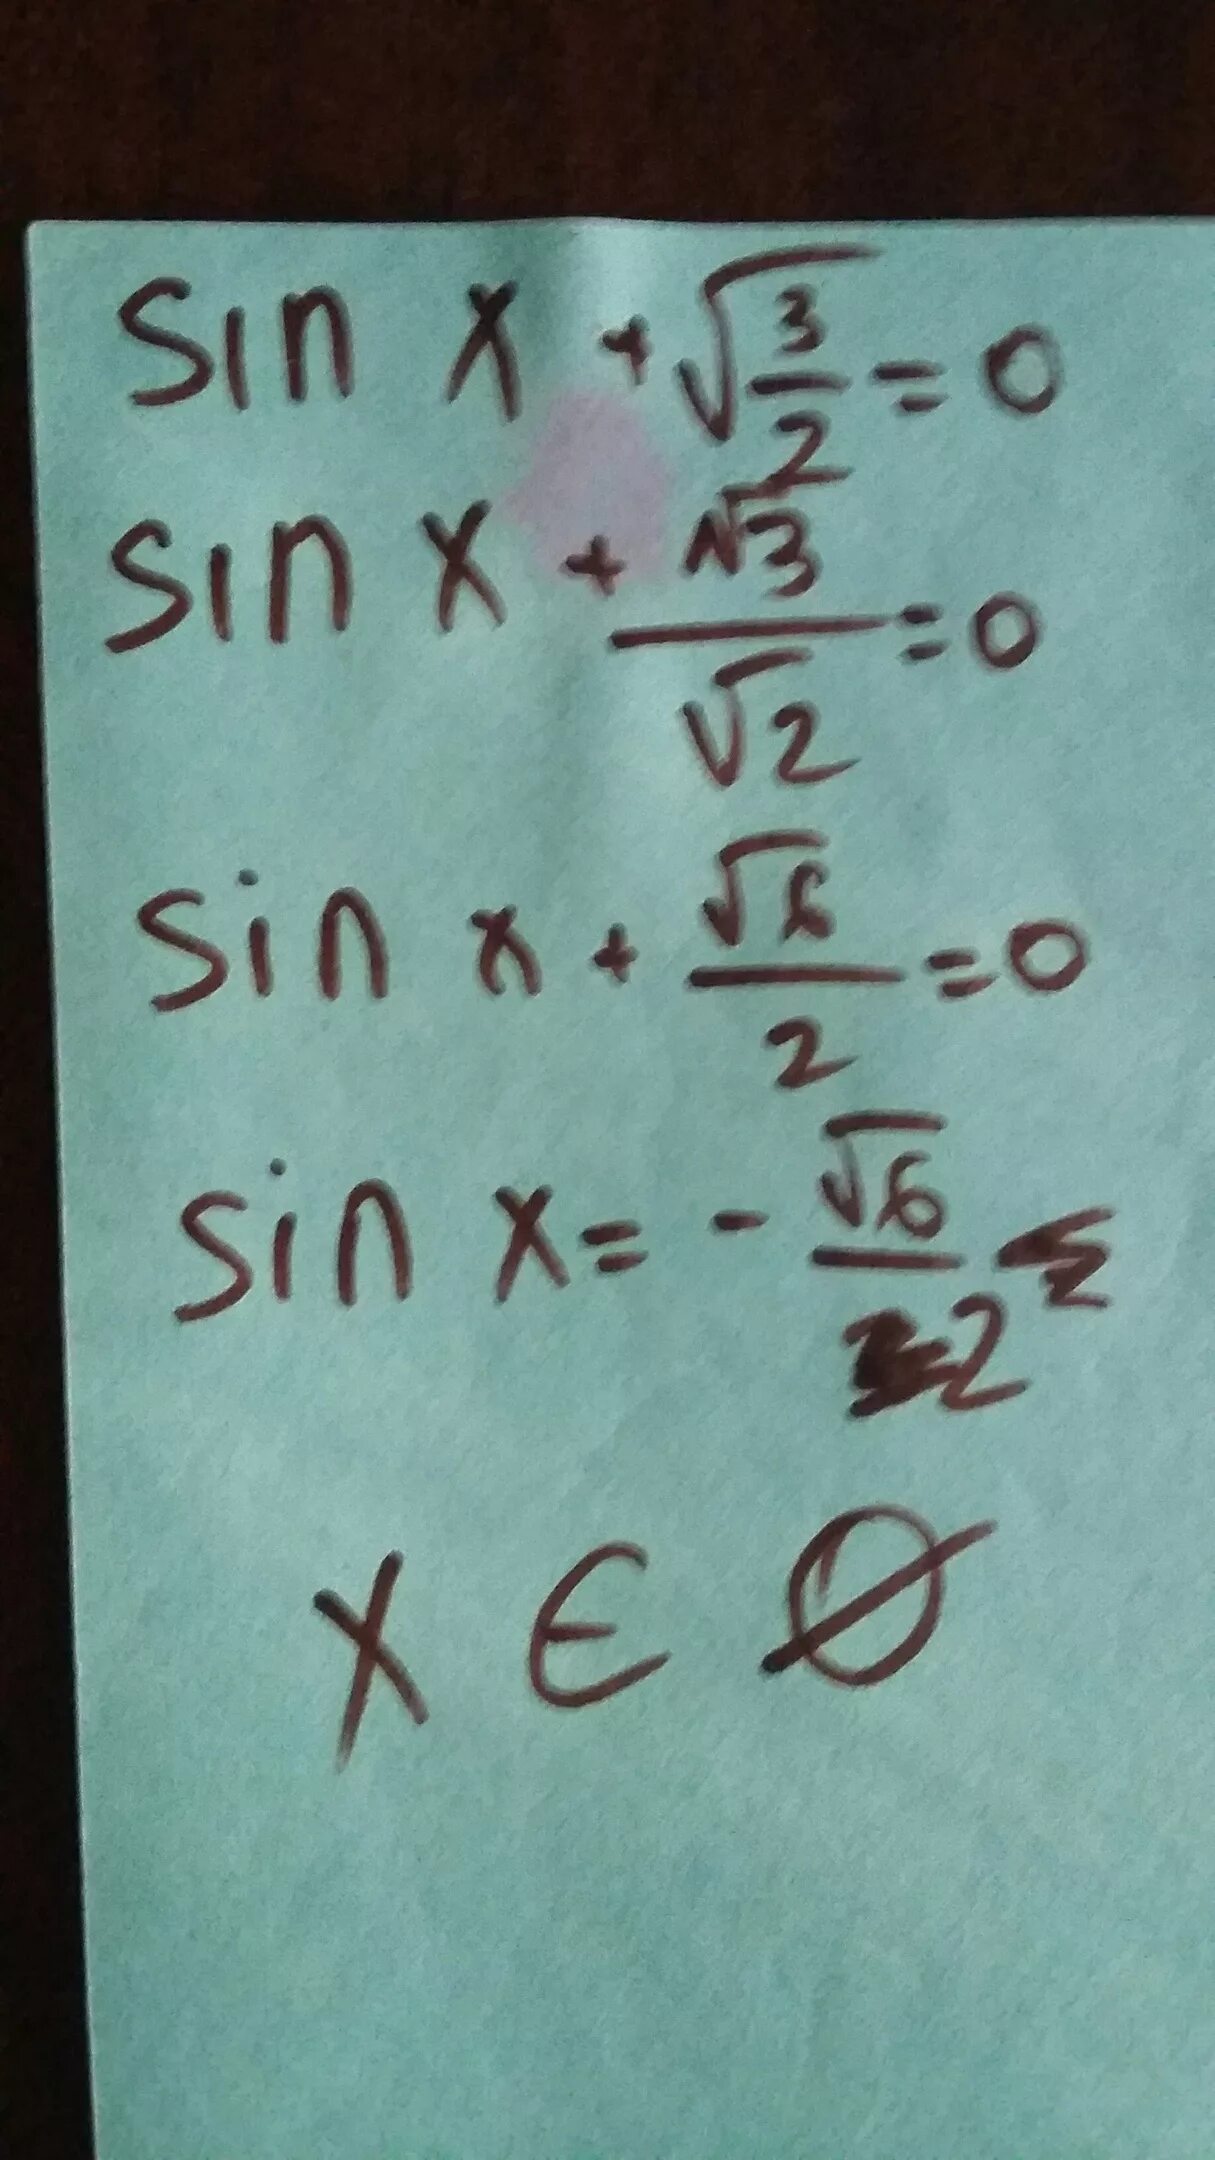 sin x + √(3/2) = 0
sin x + √3/√2 = 0
sin x + √6/2 = 0
sin x = - √6/2
x ∈ ∅